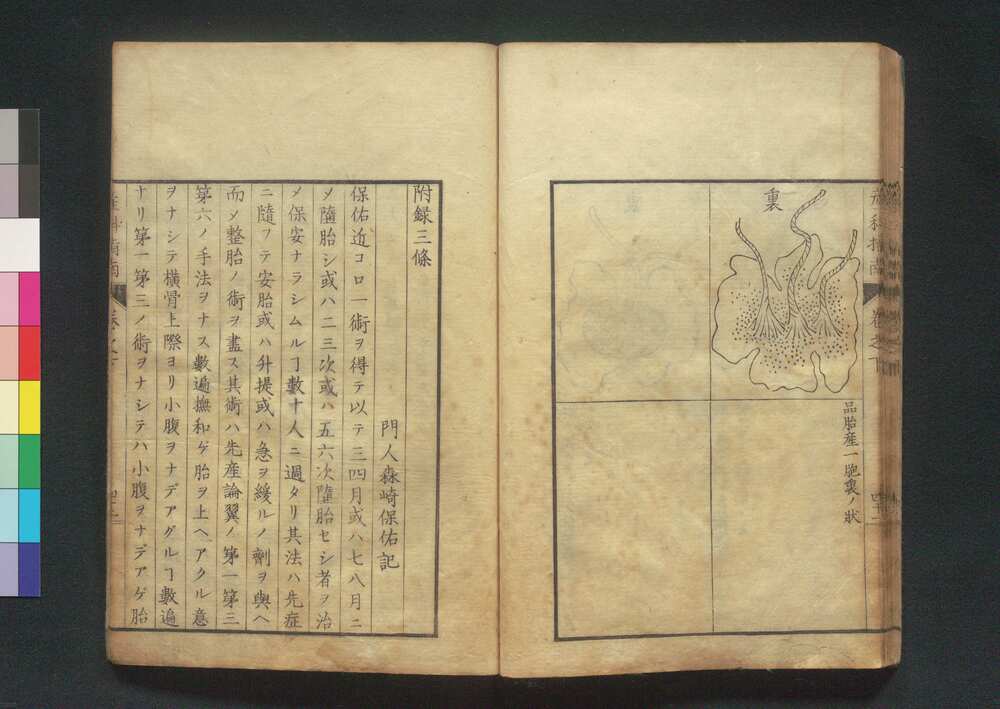 裏
品胎産一胞裏ノ状
産科指南
卷之下
四十二
附録三條
門人森崎保佑記
保佑近コロ一術ヲ得テ以テ三四月或ハ七八月ニ
〆隨胎シ或ハ二三次或ハ五六次隨胎セシ者ヲ治
〆保安ナラシムルヿ數十人ニ過タリ其法ハ先症
ニ隨フテ安胎或ハ升提或ハ急ヲ緩ルノ劑ヲ與ヘ
而〆整胎ノ術ヲ盡ス其術ハ先産論翼ノ第一第三
第六ノ手法ヲナス數遍撫和ゲ胎ヲ上ヘアクル意
ヲナシテ横骨上際ヨリ小腹ヲナデアグルヿ數遍
ナリ第一第三ノ術ヲナシテハ小腹ヲナデアゲ胎
産科指南
卷之下